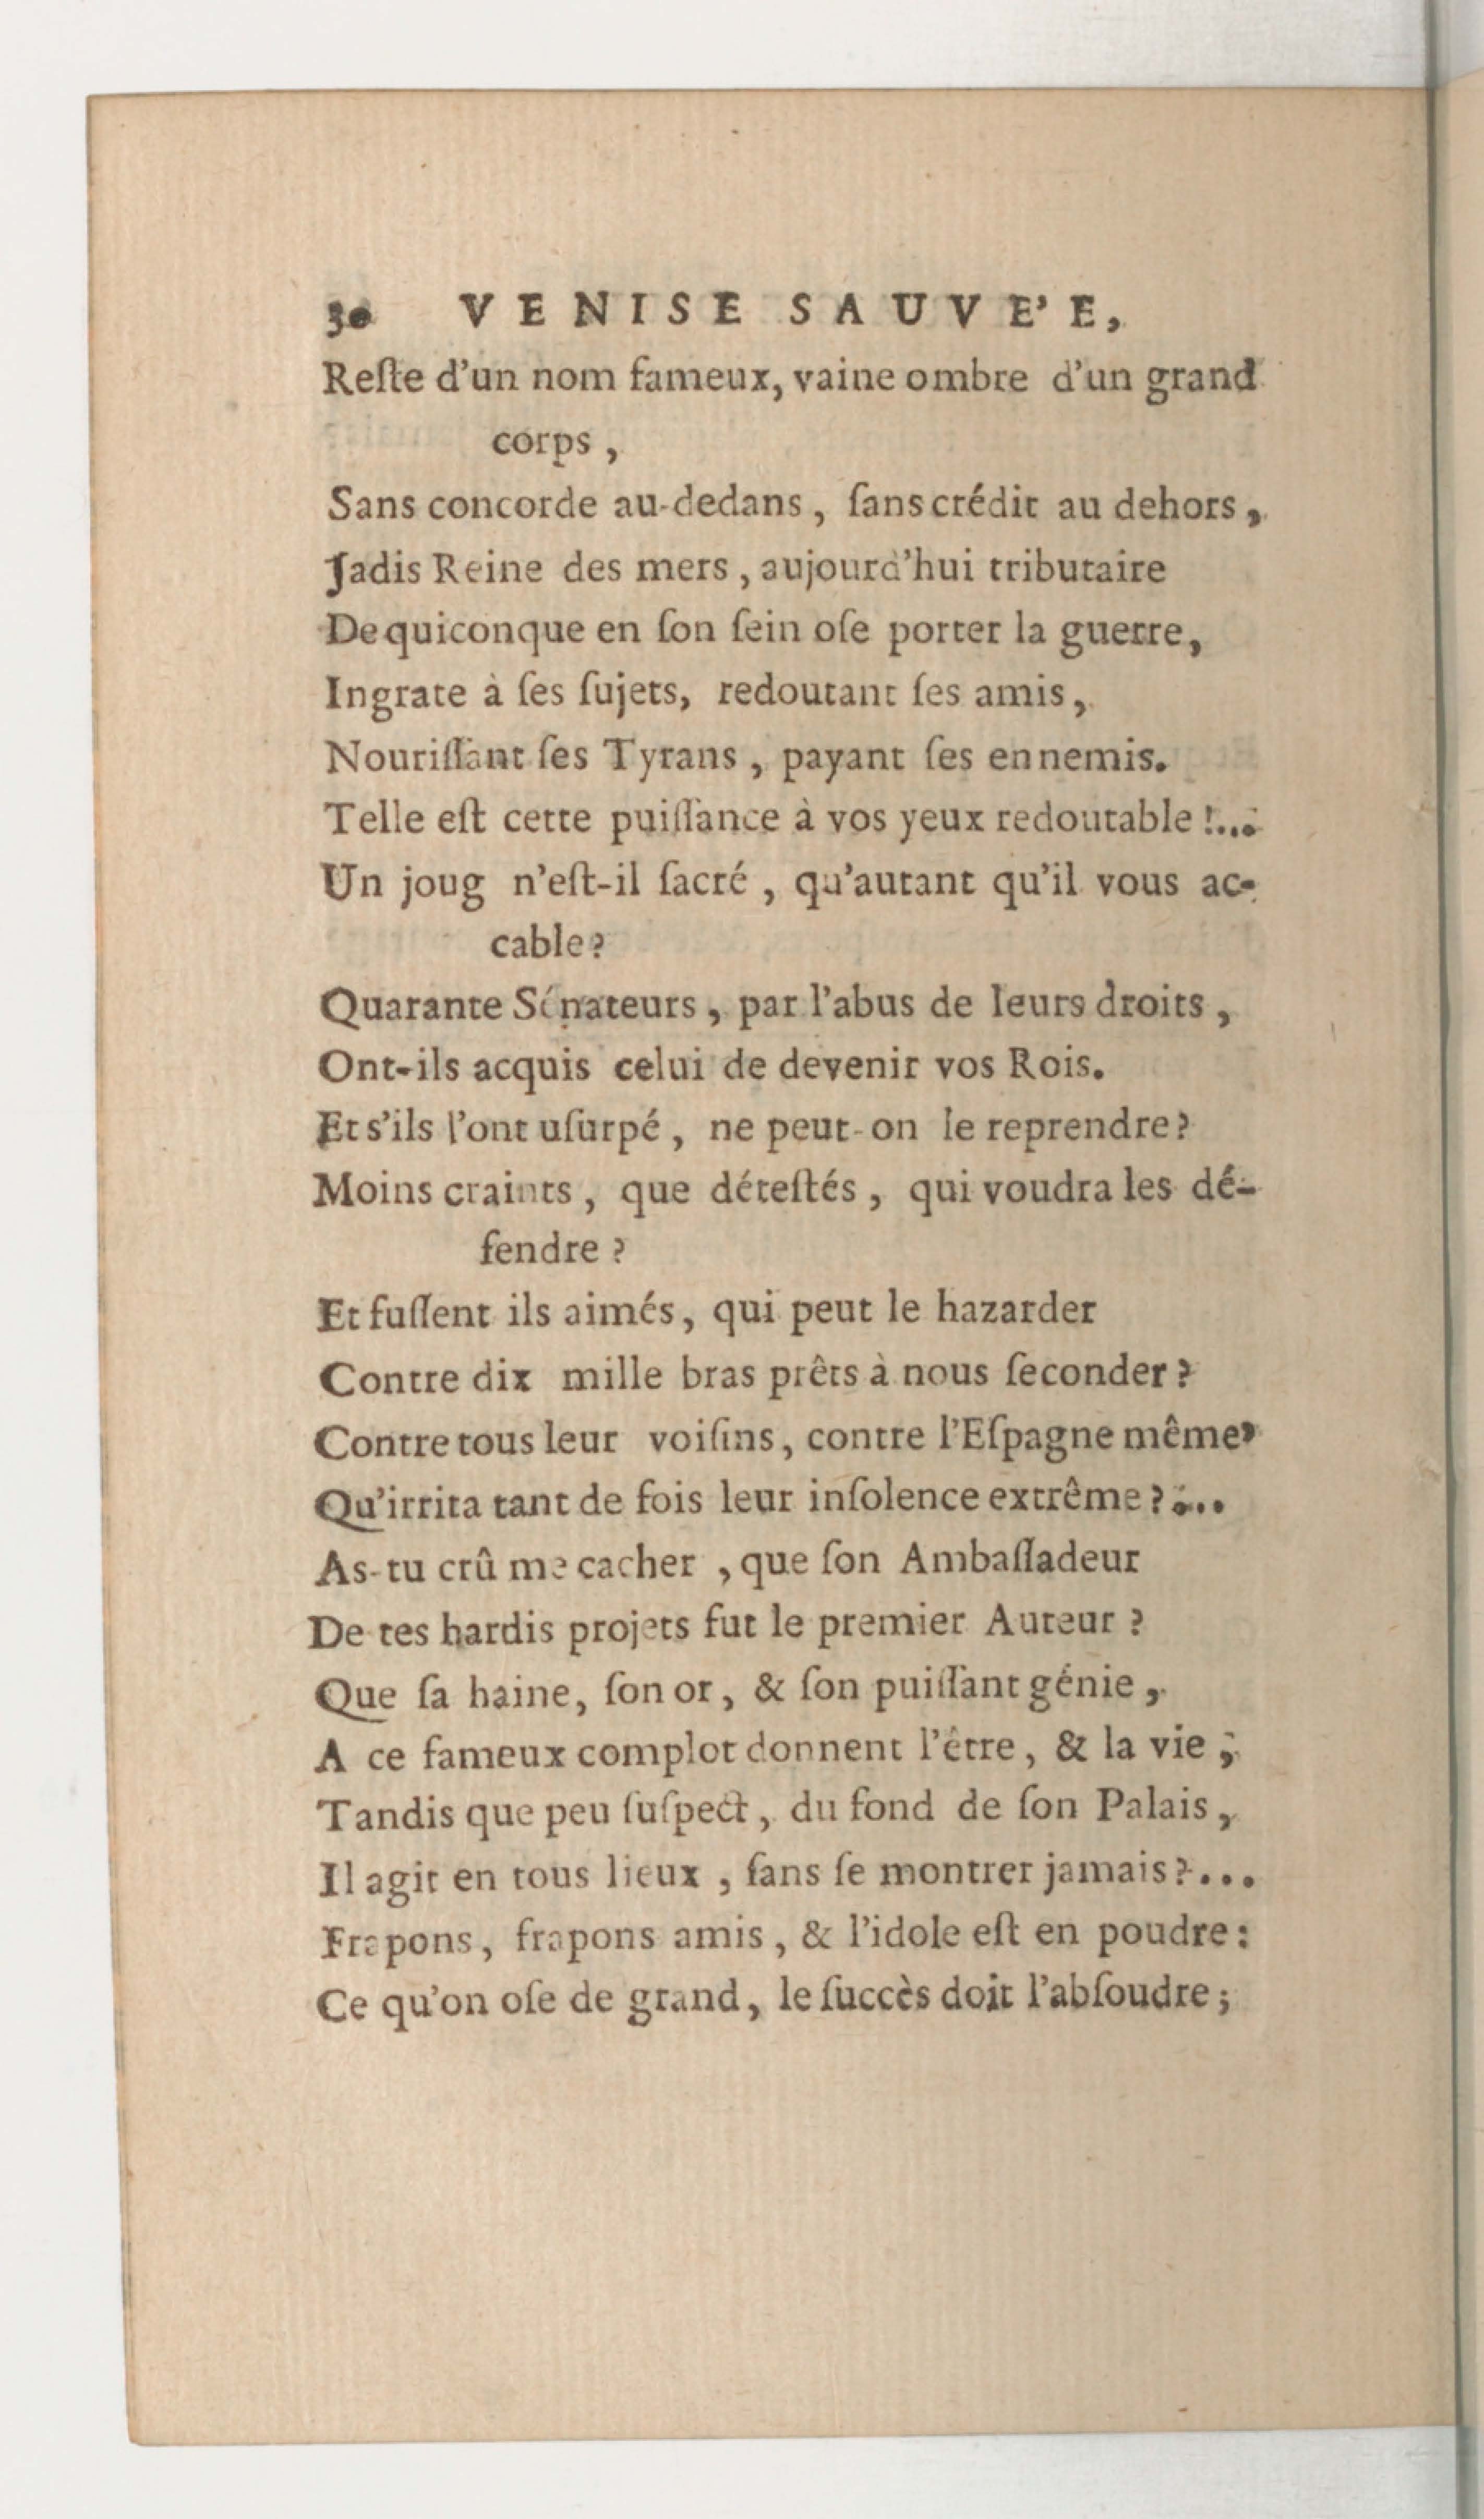 30 VENISE SAUVE'E,
Reſte d'un nom fameux, vaine ombre d'un grand
corps,
Sans concorde au-dedans, ſans crédit au dehors,
Jadis Reine des mers, aujourd'hui tributaire
De quiconque en ſon ſein oſe porter la guerre,
Ingrate à ſes ſujets, redoutant ſes amis,
Nouriſſant ſes Tyrans, payant ſes ennemis.
Telle eſt cette puiſſance à vos yeux redoutable !...
Un joug n'eſt-il ſacré, qu'autant qu'il vous ac-
cable?
Quarante Sénateurs, par l'abus de leurs droits,
Ont-ils acquis celui de devenir vos Rois.
Et s'ils l'ont uſurpé, ne peut-on le reprendre?
Moins craints, que déteſtés, qui voudra les dé-
fendre ?
Et fuſſent ils aimés, qui peut le hazarder
Contre dix mille bras prêts à nous ſeconder ?
Contre tous leur voiſins, contre l'Eſpagne même,
Qu'irrita tant de fois leur inſolence extrême ?...
As-tu crû me cacher, que ſon Ambaſſadeur
De tes hardis projets fut le premier Auteur ?
Que ſa haine, ſon or, & ſon puiſſant génie,
A ce fameux complot donnent l'être, & la vie ;
Tandis que peu ſuſpect, du fond de ſon Palais,
Il agit en tous lieux, ſans ſe montrer jamais ?...
Frapons, frapons amis, & l'idole eſt en poudre :
Ce qu'on oſe de grand, le ſuccès doit l'abſoudre ;